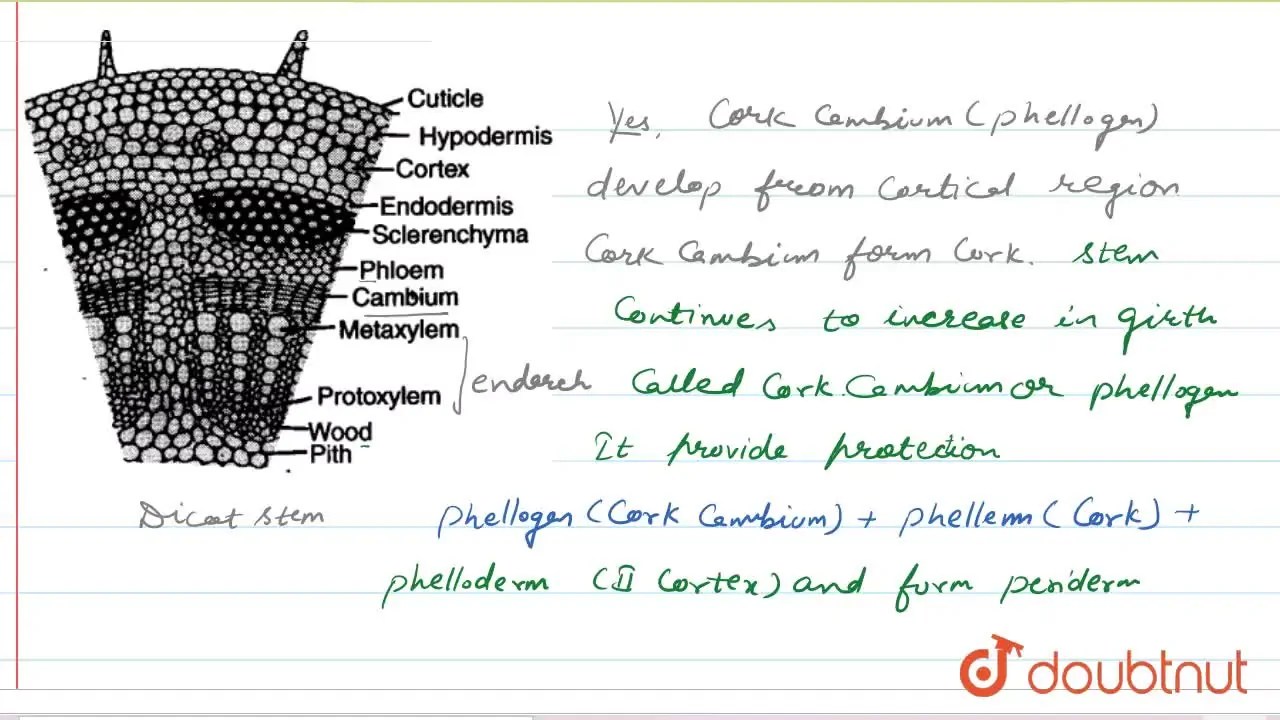 Cuticle
Hypodermis
Cortex
Endodermis
Sclerenchyma
Phloem
Cambium
Metaxylem
Protoxylem
Wood
Pith
endarch
Dicot stem
Yes, Cork Cambium (phellogen)
develop from Cortical region
Cork Cambium form Cork. stem
Continues to increase in girth
Called Cork Cambium or phellogen
It provide protection
phellogen (Cork Cambium) + phellem (Cork) +
phelloderm (II Cortex) and form periderm
doubtnut